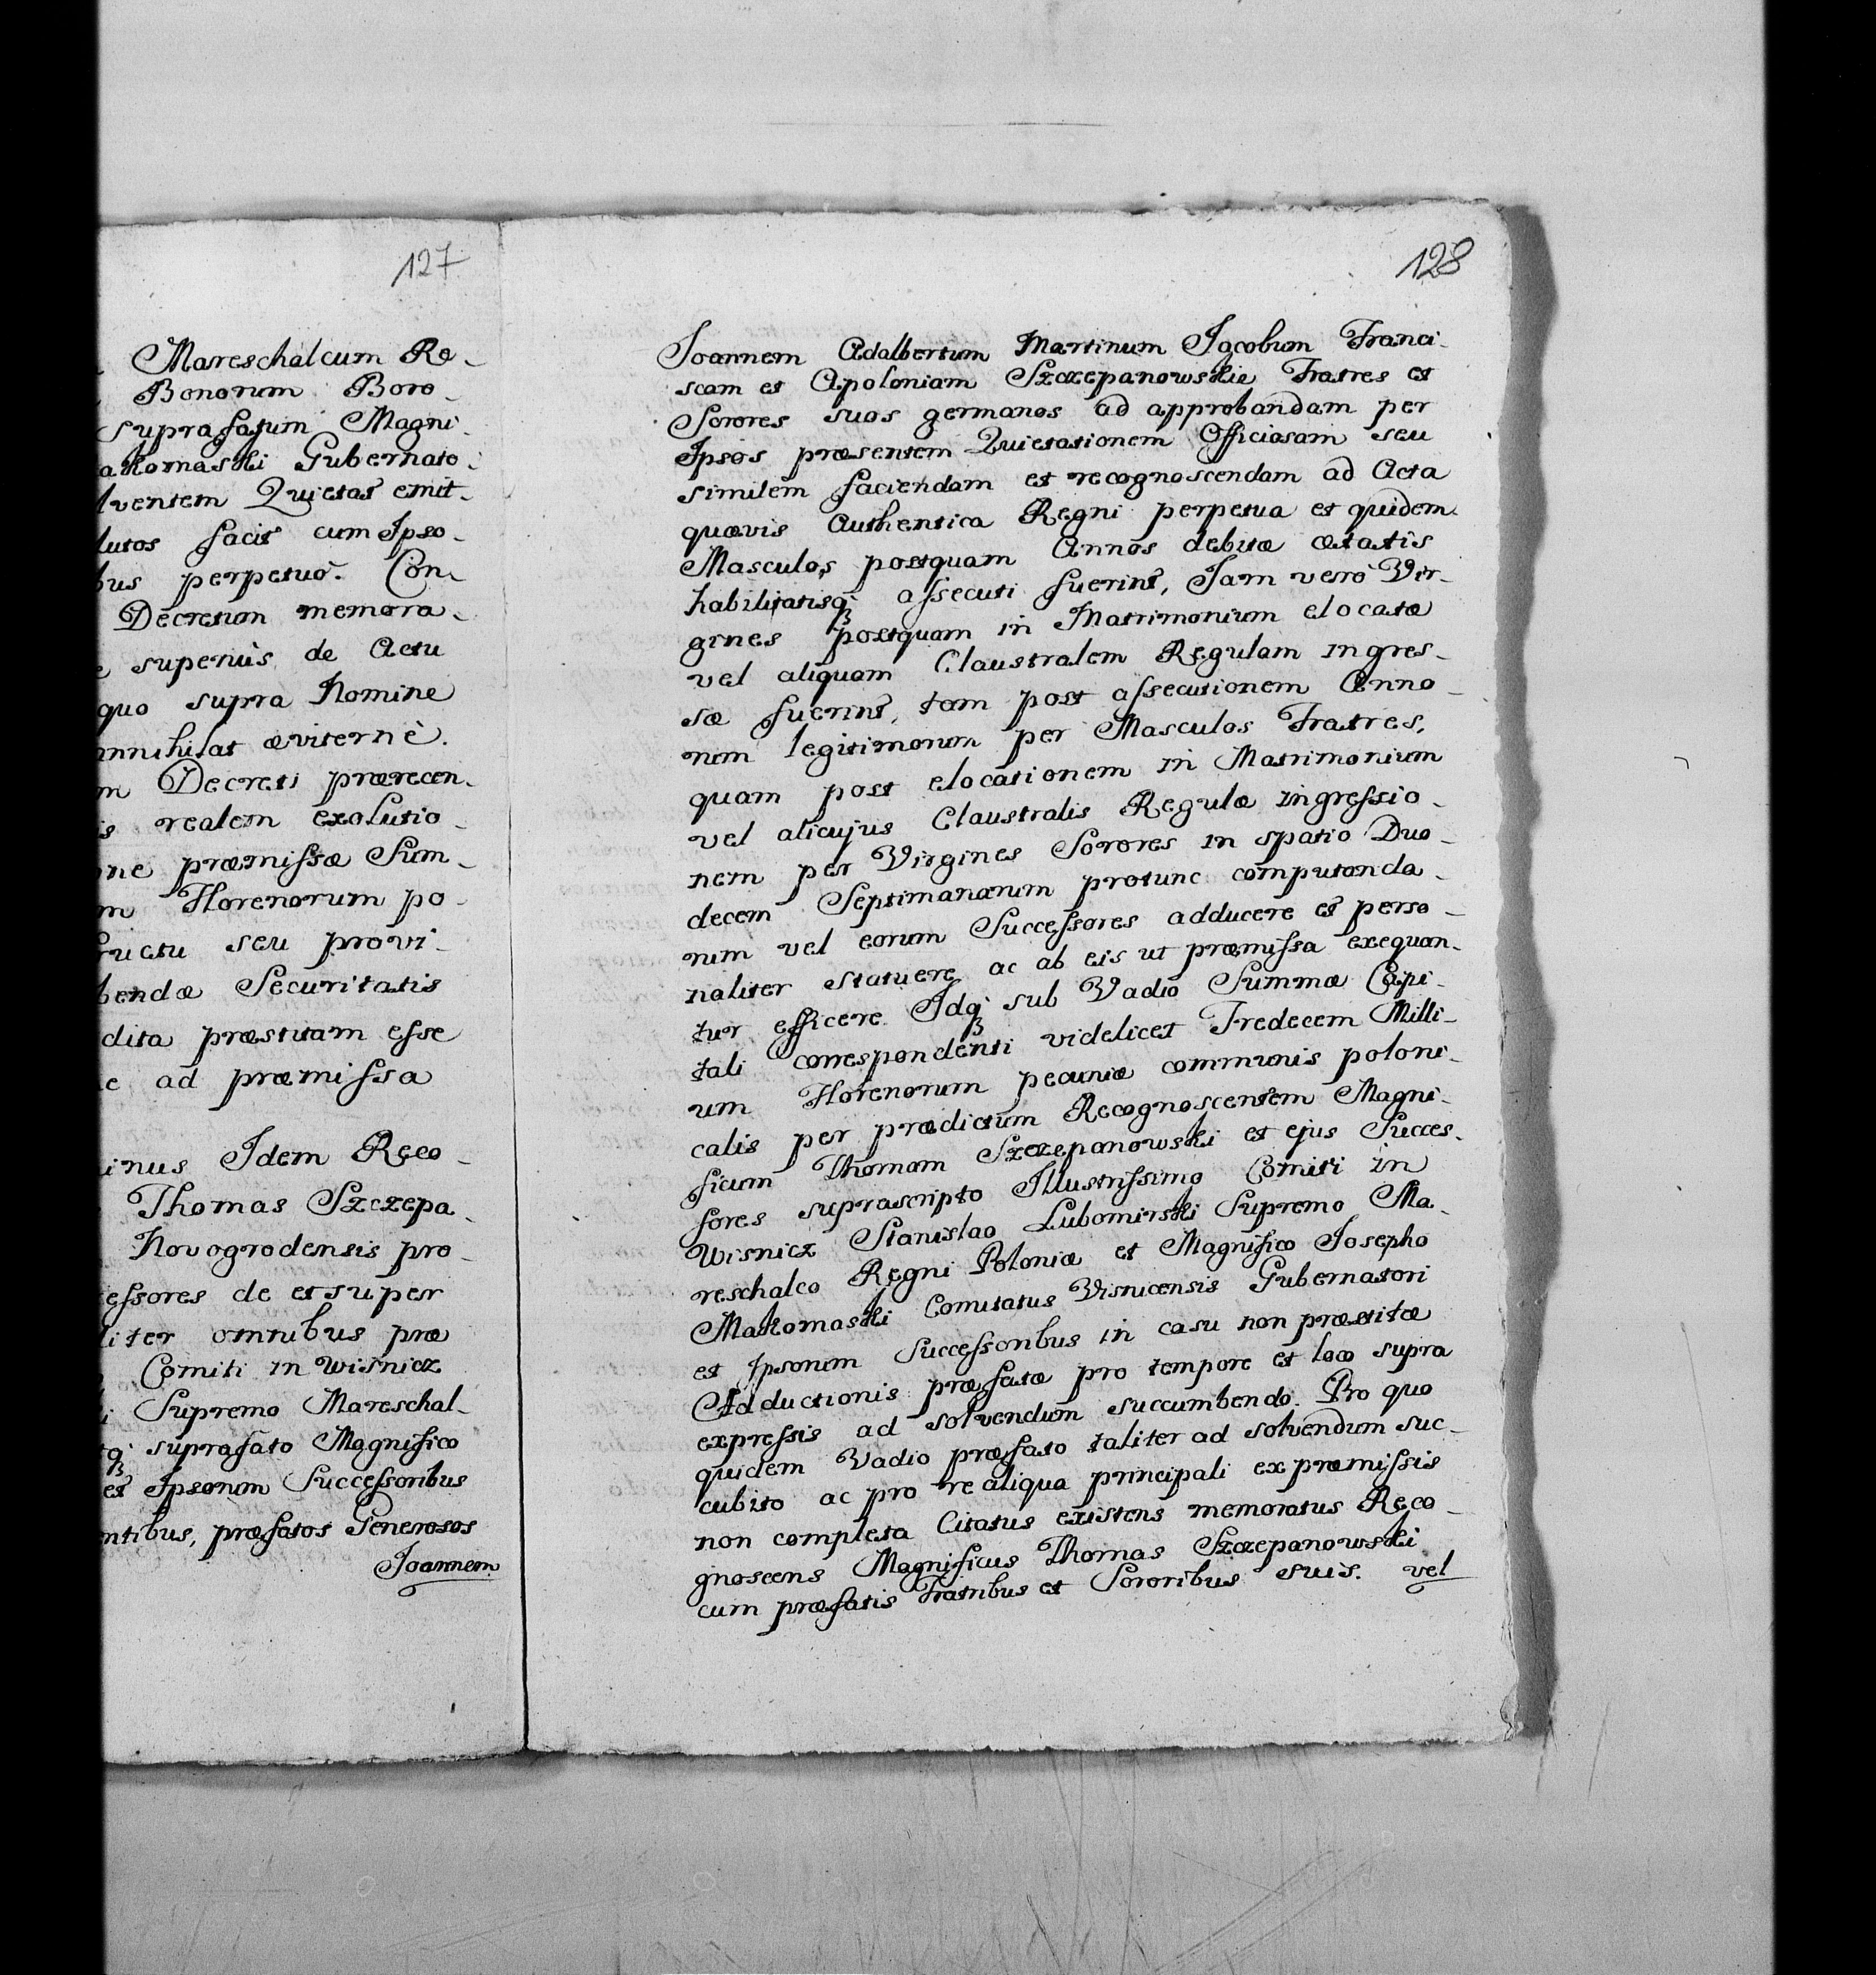 127
Mareschalcum Re-
Bonorum Boro-
suprafatum Magni-
akomaski Gubernato-
lventem Quietat emit-
lutos facit cum Ipso-
bus perpetuo. Con-
Decretum memora-
superius de Actu
quo supra Nomine
annihilat æviterne.
m Decreti prærecen-
is realem exolutio-
ne præmissæ Sum-
m Florenorum po-
ructu seu provi-
bendæ Securitatis
dita præstitam esse
e ad præmissa
inus Idem Reco-
Thomas Szczepa-
Novogrodensis pro-
essores de et super
liter omnibus præ
Comiti in Wisnicz
i Supremo Mareschal-
tq; suprafato Magnifico
et Ipsorum Successoribus
ntibus, præfatos Generosos
Joannem
128
Joannem Adalbertum Martinum Jacobum Franci-
scam et Apoloniam Szczepanowskie Fratres et
Sorores suos germanos ad approbandam per
Ipsos præsentem Quietationem Officiosam seu
similem faciendam et recognoscendam ad Acta
quævis Authentica Regni perpetua et quidem
Masculos postquam Annos debitæ ætatis
habilitatisq; assecuti fuerint, Jam vero Vir-
gines postquam in Matrimonium elocatæ
vel aliquam Claustralem Regulam ingres-
sæ fuerint, tam post assecutionem Anno-
rum legitimorum per Masculos Fratres,
quam post elocationem in Matrimonium
vel alicujus Claustralis Regulæ ingressio-
nem per Virgines Sorores in spatio Duo-
decem Septimanarum protunc computanda-
rum vel eorum Successores adducere et perso-
naliter statuere ac ab eis ut præmissa exequan-
tur efficere Idq; sub Vadio Summæ Capi-
tali correspondenti videlicet Tredecem Milli-
um Florenorum pecuniæ communis poloni-
calis per prædictum Recognoscentem Magni-
ficum Thomam Szczepanowski et ejus Succes-
sores suprascripto Illustrissimo Comiti in
Wisnicz Stanislao Lubomirski Supremo Ma-
reschalco Regni Poloniæ et Magnifico Josepho
Makomaski Comitatus Visnicensis Gubernatori
et Ipsorum Successoribus in casu non præstitæ
Adductionis præfatæ pro tempore et loco supra
expressis ad solvendum succumbendo. Pro quo
quidem Vadio præfato taliter ad solvendum suc-
cubito ac pro re aliqua principali ex præmissis
non completa Citatus existens memoratus Reco-
gnoscens Magnificus Thomas Szczepanowski
cum præfatis Fratribus et Sororibus suis. vel